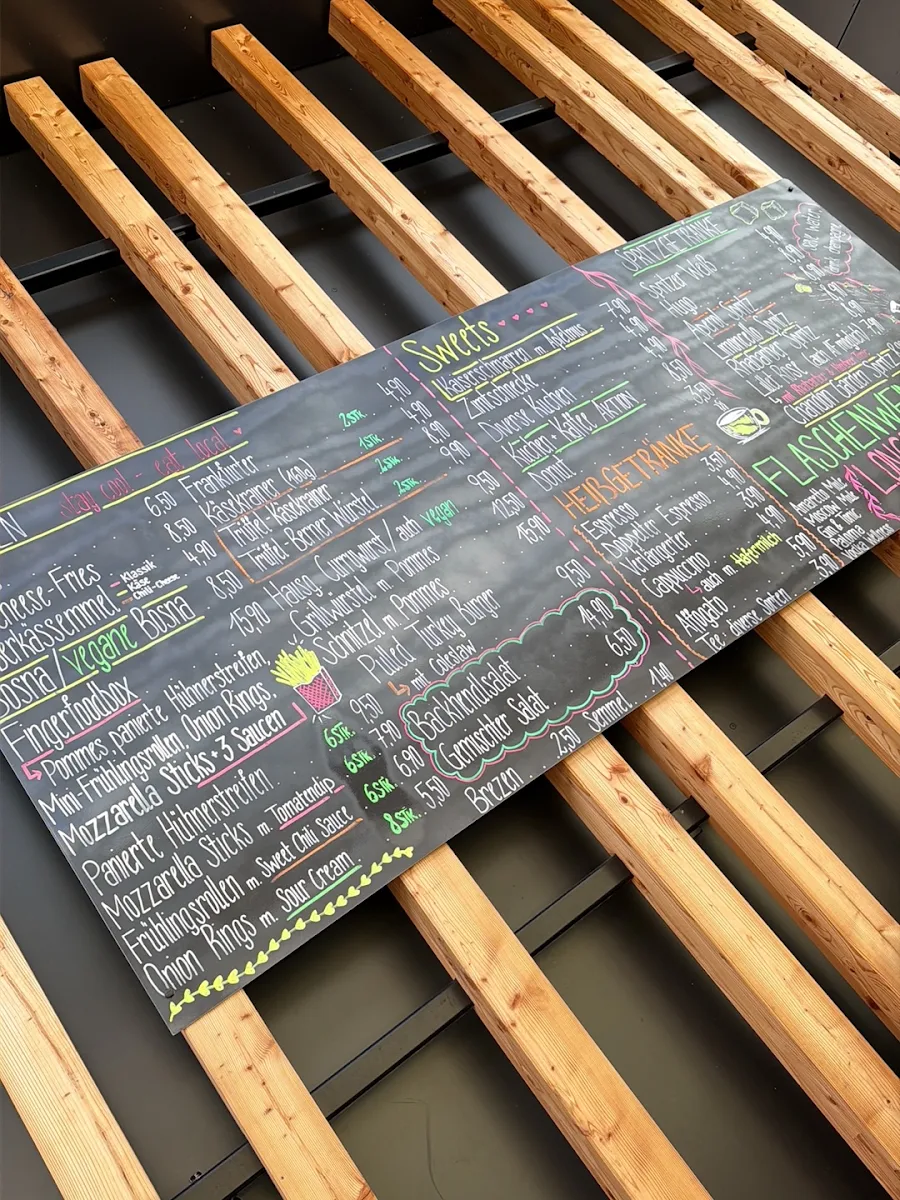 stay cool - eat local
N
6,50
heese-Fries
8,50
Klassik
Käse
Chili-Cheese
4,90
Bosna/vegane Bosna
8,50
Fingerfoodbox
15,90
Pommes, panierte Hühnerstreifen,
Mini-Frühlingsrollen, Onion Rings,
Mozzarella Sticks + 3 Saucen
Panierte Hühnerstreifen 6 Stk. 9,50
Mozzarella Sticks m. Tomatendip 6 Stk. 7,90
Frühlingsrollen m. Sweet Chili Sauce 6 Stk. 6,90
Onion Rings m. Sour Cream 8 Stk. 5,50
Frankfurter 2 Stk. 4,90
Käsekrainer 1 Stk.
Trüffel-Käsekrainer 2 Stk. 8,90
Trüffel Berner Würstel 2 Stk. 9,90
Hauso Currywurst/auch vegan 9,50
Grillwürstel m. Pommes 12,50
Schnitzel m. Pommes 15,90
Pulled Turkey Burger 9,50
mit Coleslaw
Backhendlsalat 14,90
Gemischter Salat 6,50
Brezen 2,50 Semmel 1,40
Sweets
Kaiserschmarren m. Apfelmus 7,90
Zimtschnecke 4,90
Diverse Kuchen 4,90
Kuchen + Kaffee AKTION 8,50
Donut
HEIßGETRÄNKE
Espresso 3,50
Doppelter Espresso 4,90
Verlängerter 3,90
Cappuccino 4,90
auch m. Hafermilch
Affogato 5,90
Tee diverse Sorten 3,90
SPRITZGETRÄNKE
Spritzer Weiß
Hugo
Aperol Spritz
Limoncello Spritz
FLASCHENWE
LONG
Moscow Mule